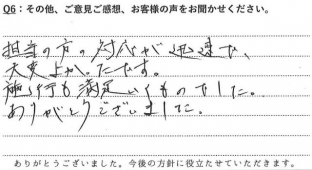 Q6：その他、ご意見ご感想、お客様の声をお聞かせください。
担当の方の対応が迅速で、
大変よかったです。
施行も満足いくものでした。
ありがとうございました。
ありがとうございました。今後の方針に役立たせていただきます。